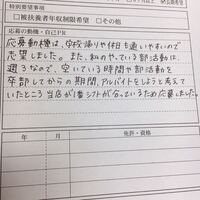 特別要望事項
□被扶養者年収制限希望 □その他
応募の動機・自己PR
応募動機は、学校帰りや休日も通いやすいので
志望しました。また、私のやっている部活動は、
週3なので、空いている時間や部活動を
卒部してからの期間、アルバイトをしようと考えて
いたところ当店が1番シフトが合っているため応募しました。
年 月 免許・資格